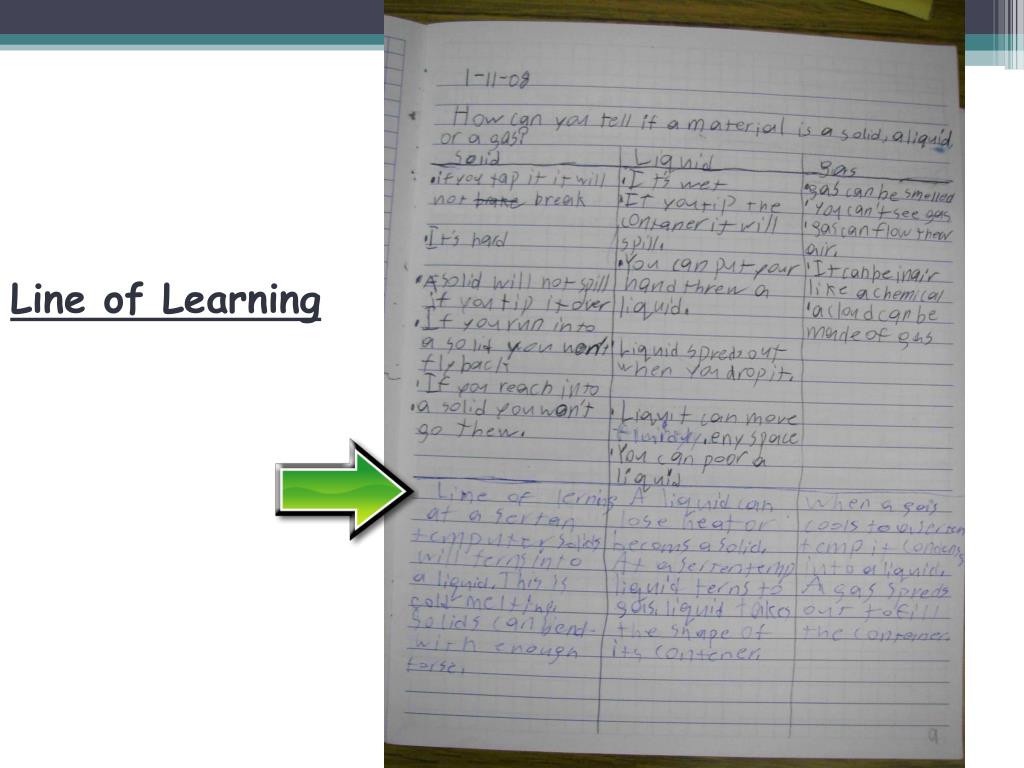 Line of Learning
1-11-08
How can you tell if a material is a solid, a liquid,
or a gas?
Solid
•if you tap it it will
not brake break
•It's hard
•A solid will not spill
if you tip it over
•If you run into
a solid you won't
fly back
•If you reach into
•a solid you won't
go thew.
Liquid
•It's wet
•If you tip the
contaner it will
spill.
•You can put your
hand threw a
liquid.
Liquid spreds out
when you drop it.
•Liquit can move
eny space
•You can poor a
liquid
gas
•gas can be smelled
•You can't see gas
•gas can flow thew
air.
•It can be in air
like a chemical
•a cloud can be
made of gas
Line of lerning
at a sertan
temputer solids
will terns into
a liquid. This is
cold melting.
Solids can bend
with enough
forse.
A liquid can
lose heat or
becoms a solid.
At a serten temp
liquid terns to
gas. liquid take
the shape of
its contener.
When a gas
cools to a serten
temp it condens
into a liquid.
A gas spreds
out to fill
the contener.
9